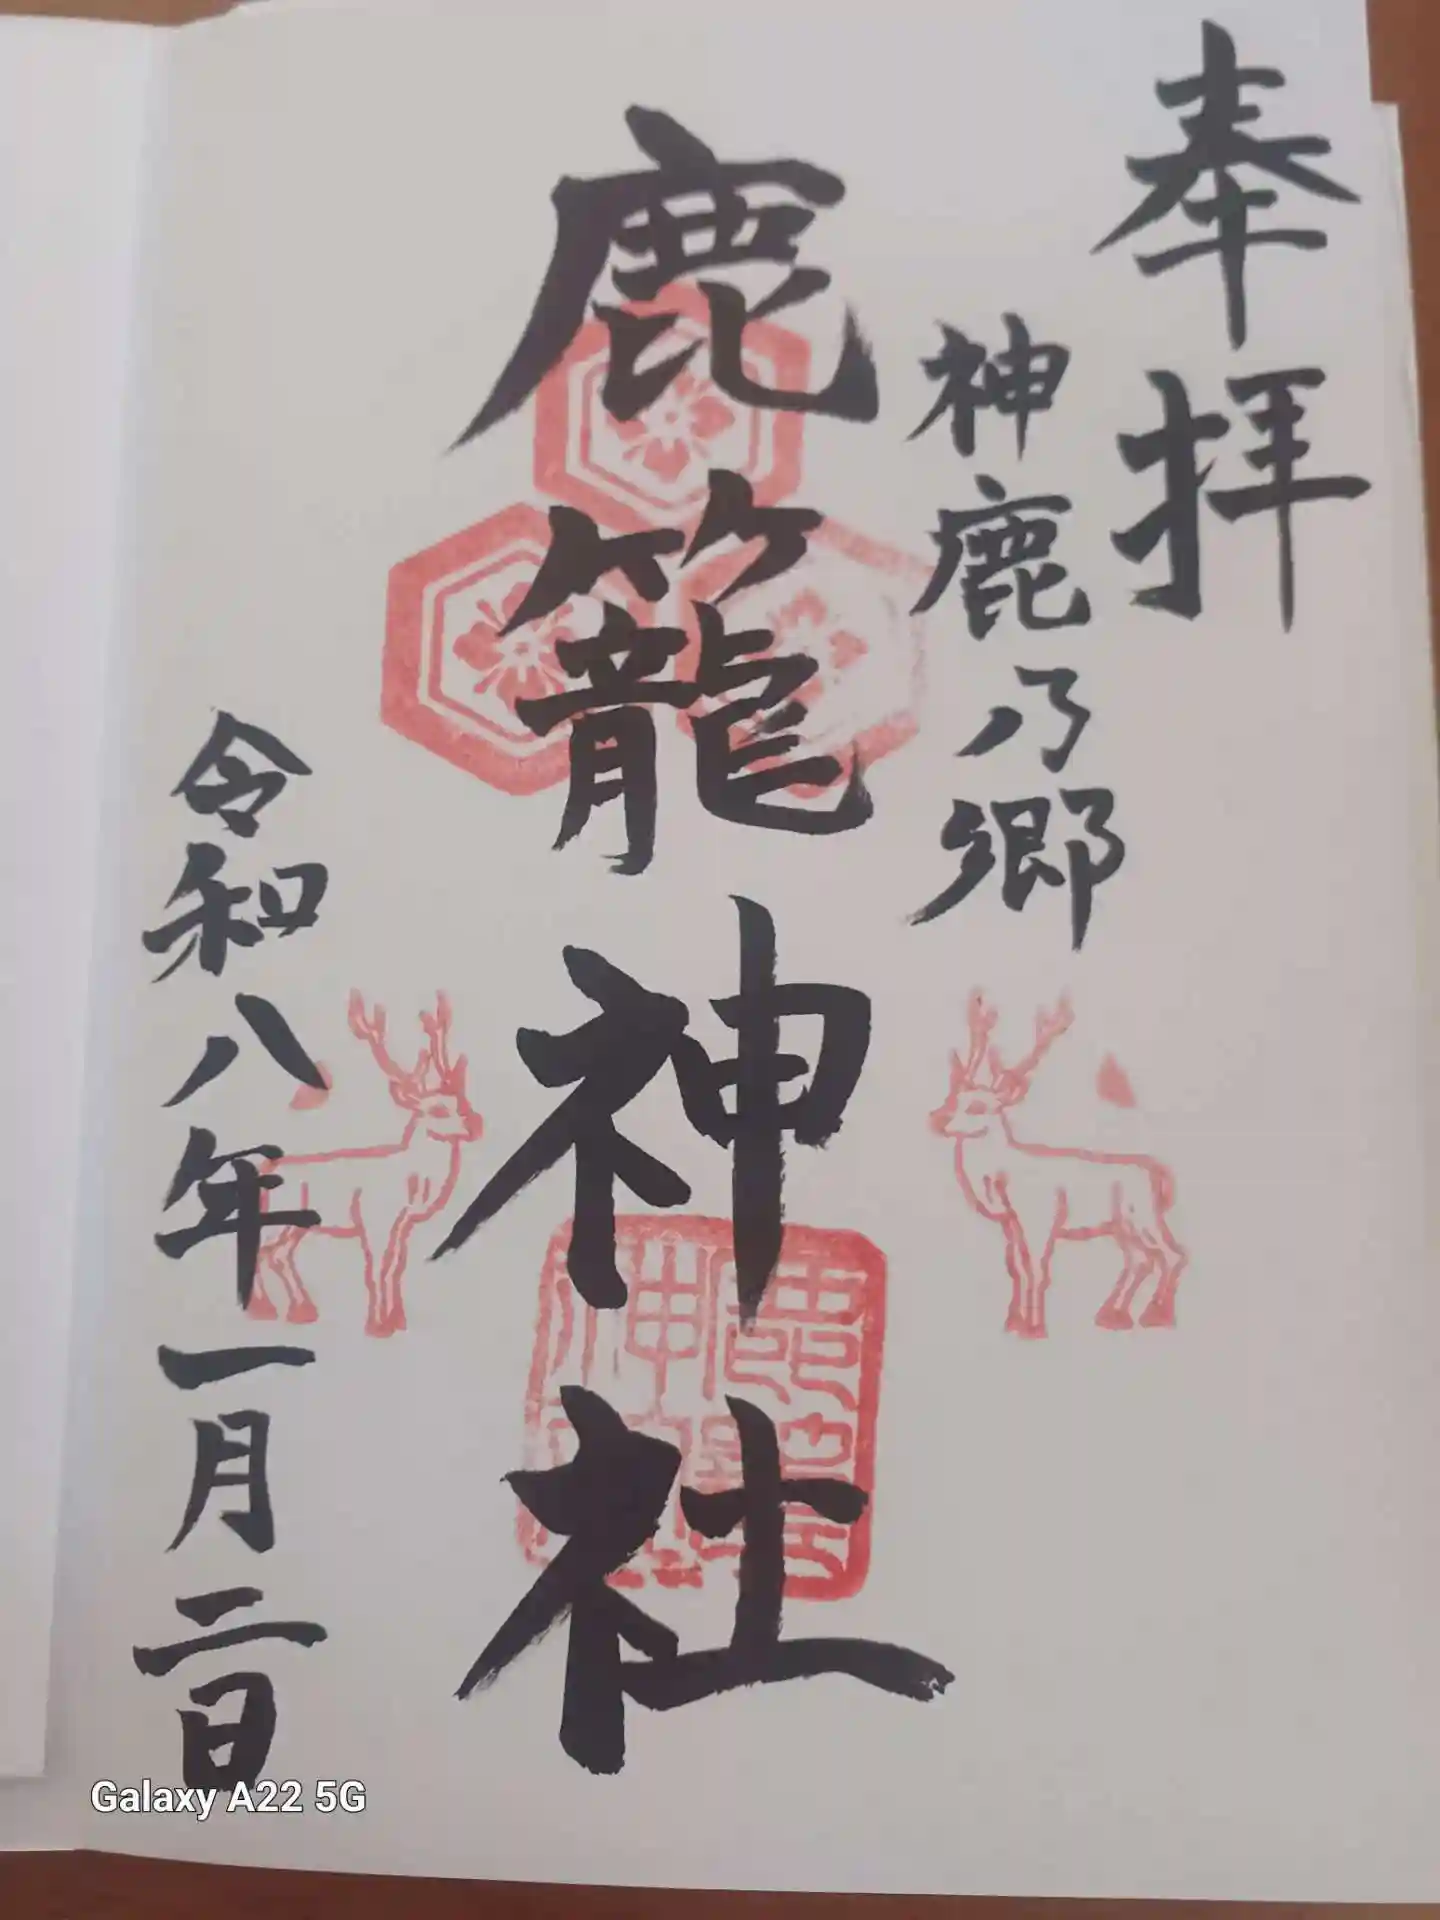 奉拝
神鹿乃郷
鹿籠神社
令和八年一月二日
Galaxy A22 5G